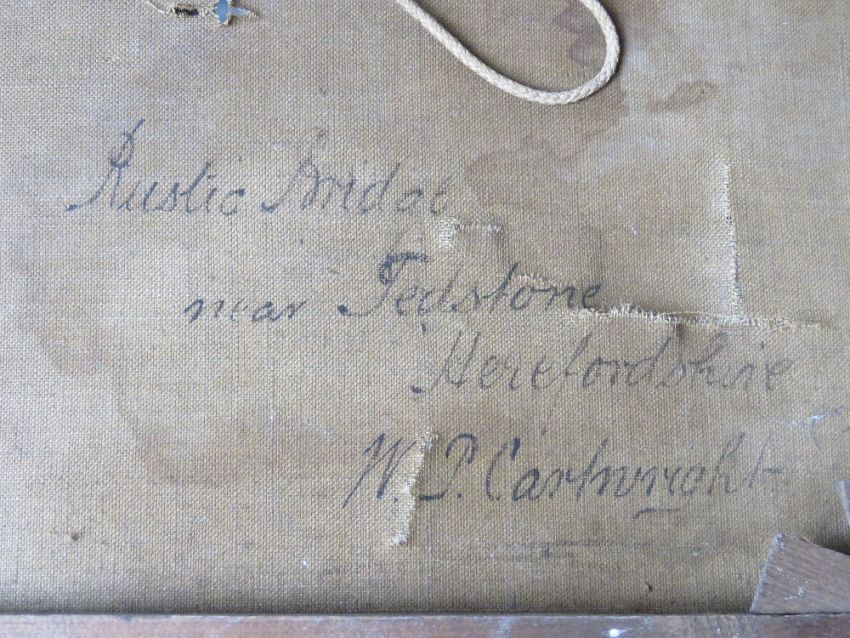 Rustic Bridge
near Tedstone
Herefordshire
W. P. Cartwright